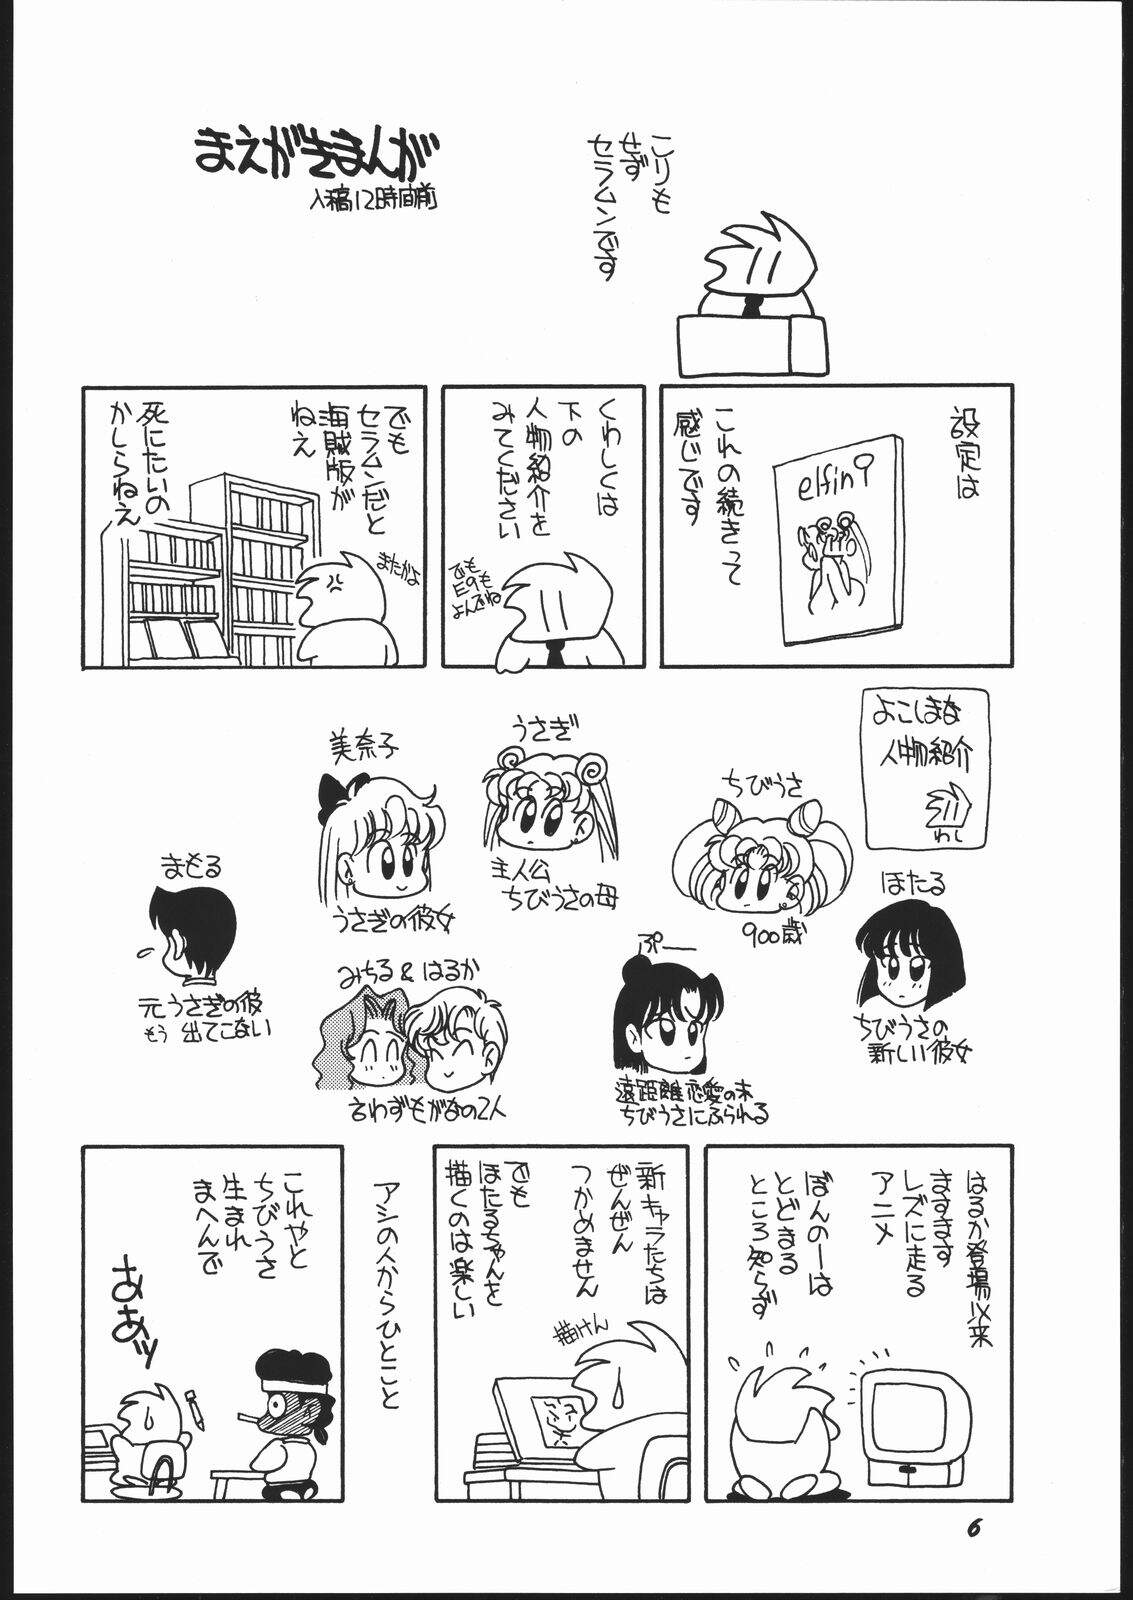 まえがきまんが
入稿12時間前
こりも
せず
セラムンです
設定は
elfin
これの続きって
感じです
くわしくは
下の
人物紹介を
みてください
でも
E9も
よんでね
でも
セラムンだと
海賊版が
ねえ
死にたいの
かしらねえ
またかよ
よこしまな
人物紹介
わし
ほたる
ちびうさの
新しい彼女
ちびうさ
900歳
ぷー
遠距離恋愛の末
ちびうさにふられる
うさぎ
主人公
ちびうさの母
美奈子
うさぎの彼女
みちる&はるか
言わずもがなの2人
まもる
元うさぎの彼
もう出てこない
はるか登場以来
ますます
レズに走る
アニメ
ぼんのーは
とどまる
ところ知らず
新キャラたちは
ぜんぜん
つかめません
でも
ほたるちゃんを
描くのは楽しい
描けん
アシの人からひとこと
これやと
ちびうさ
生まれ
まへんで
あ
あッ
6